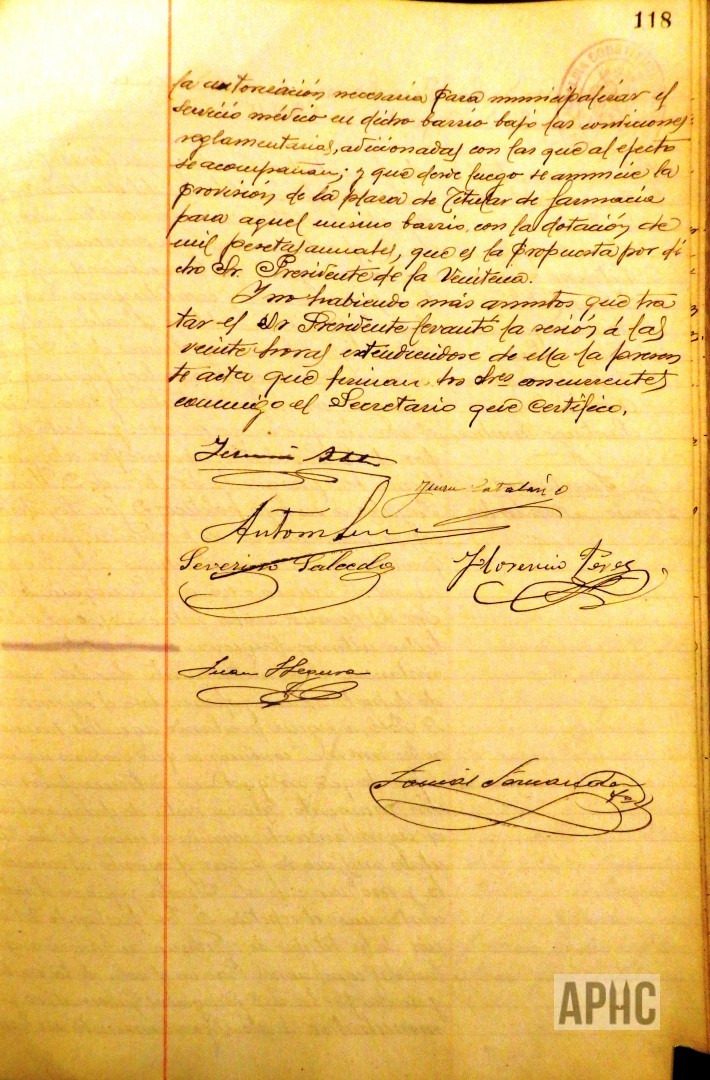 118
la autorización necesaria para municipalizar el
servicio médico en dicho barrio bajo las condiciones
reglamentarias, adicionadas con las que al efecto
se acompañan; y que desde luego se anuncie la
provisión de la plaza de Titular de farmacia
para aquel mismo barrio, con la dotación de
mil pesetas anuales, que es la propuesta por di
cho Sr. Presidente de la Veintena.
Y no habiendo más asuntos que tra
tar el Sr Presidente levantó la sesión á las
veinte horas extendiendose de ella la presen
te acta que firman los Sres concurrentes
conmigo el Secretario que certifico.
Juan Catalán
Severino Salcedo
Florencio Perez
Juan Segura
Tomás Fernandez
APHC